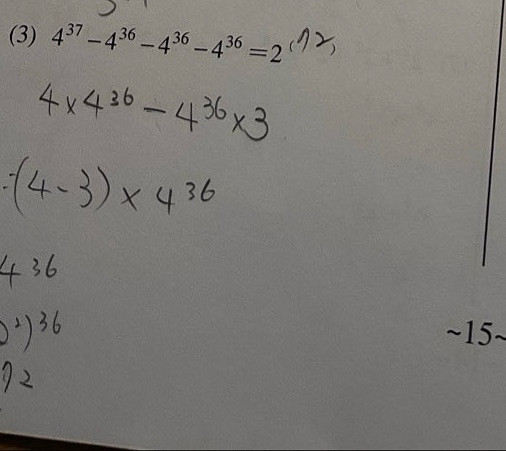 (3) 4³⁷ − 4³⁶ − 4³⁶ − 4³⁶ = 2^(72)
4 × 4³⁶ − 4³⁶ × 3
=(4 - 3) × 4³⁶
4³⁶
2²)³⁶
72
~15~